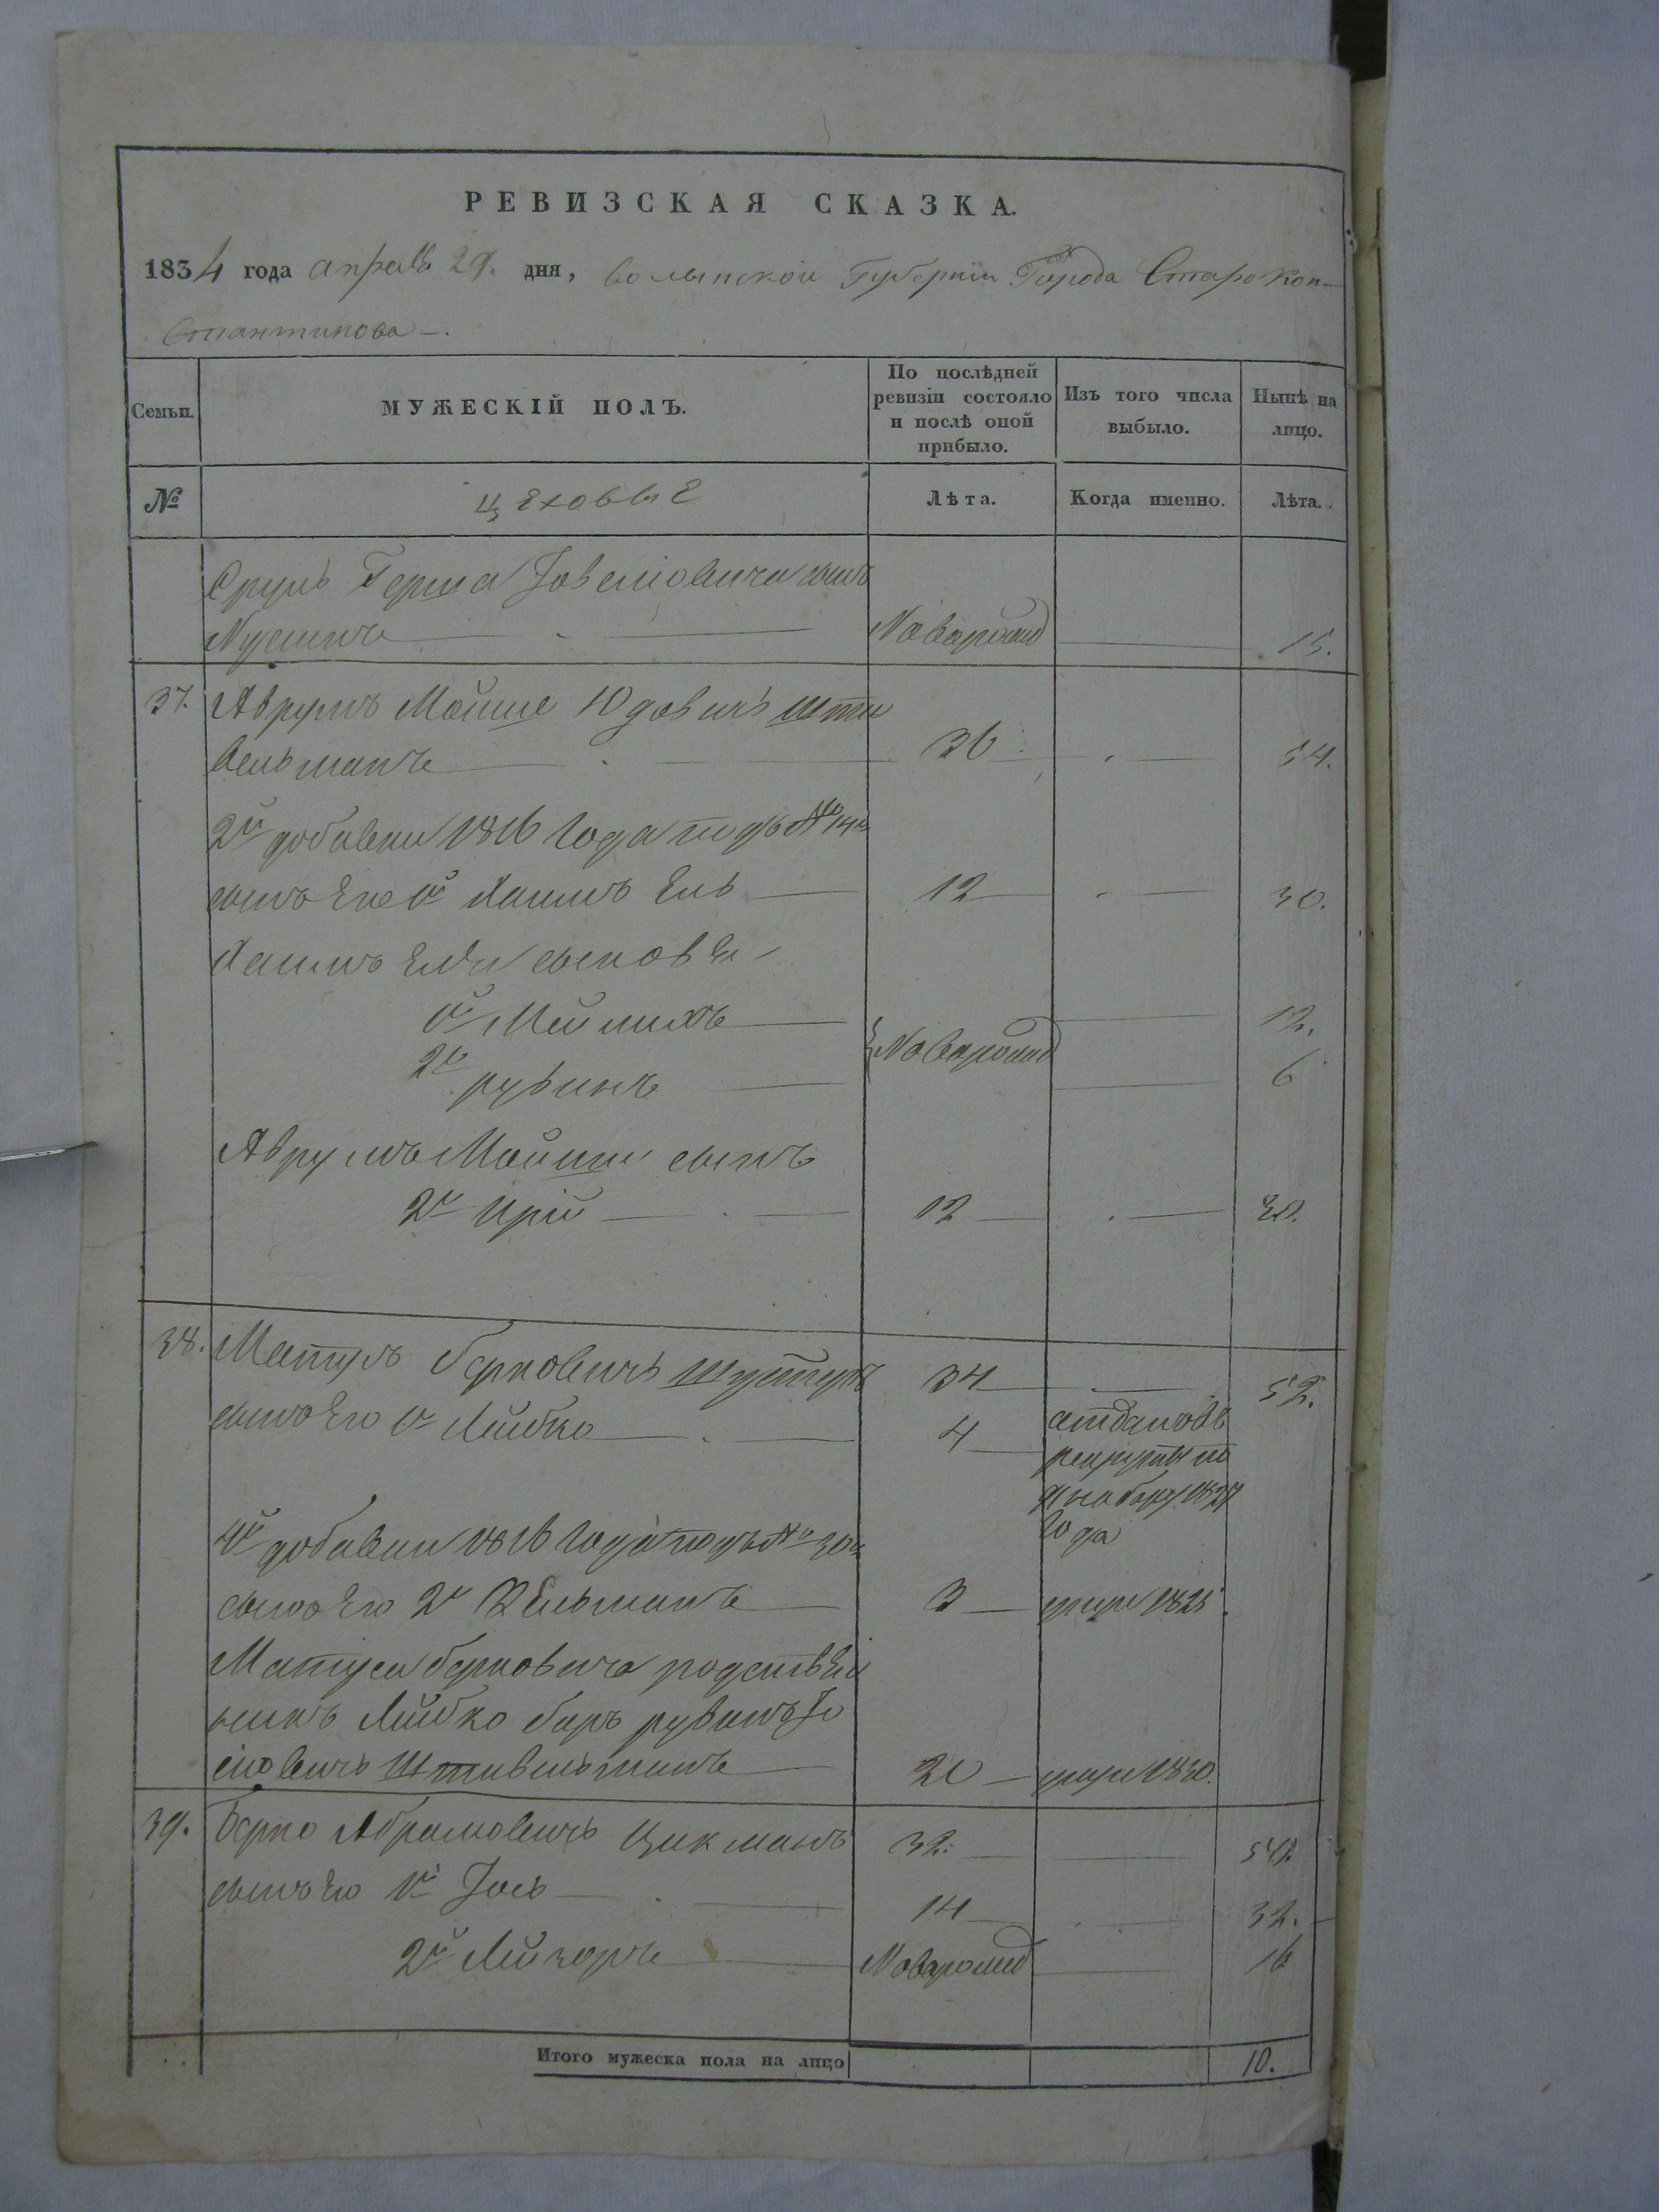 РЕВИЗСКАЯ СКАЗКА.
1834 года апреля 29. дня, волынской Губернiи Города Старокон-
стантинова-.
Семьи. МУЖЕСКІЙ ПОЛЪ. По послѣдней ревизіи состояло и послѣ оной прибыло. Изъ того числа выбыло. Нынѣ на лицо.
№ цеховые Лѣта. Когда именно. Лѣта.
Сруль Герша сынъ
Новорожд 15.
37. Аврумъ Мойше Юдовичъ Шти
вельманъ 36 54.
2й добавки 1816 года подъ №
сынъ Его 1й Хаимъ Ель 12 30.
Хаимъ Еля сыновья
1й Мейлихъ 12.
Новорожд
2й рувинъ 6
Аврумъ Мойши сынъ
2й 12 30.
38. Матусъ берковичъ Шустеръ 34 52.
сынъ Его 1й Лейбко 4 отданъ въ
рекруты по
набору 1827
года
4й добавки 1816 года подъ № 30
сынъ Его 2й Зельманъ 3 умре 1825.
Матуса берковича родствен
никъ Лейбко беръ рувинъ Іо
сіовичъ Штивельманъ 20 умре 1830.
39. Берко Абрамовичъ Цикманъ 32. 50.
сынъ Его 1й Іось 14 32.
2й Лейзоръ Новорожд 16
Итого мужеска пола на лицо 10.